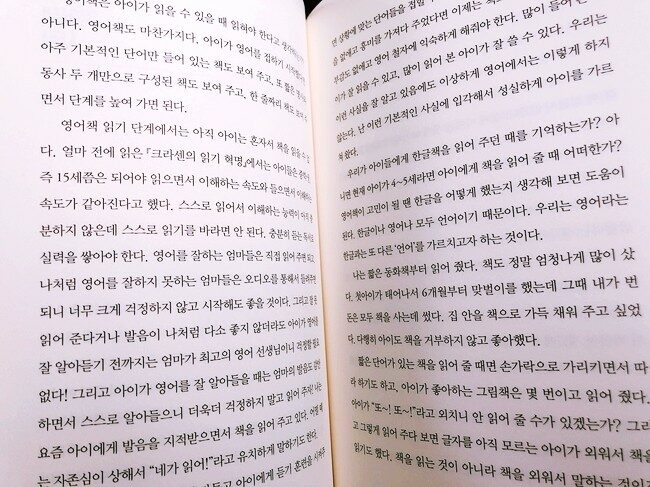 영어책은 아이가 읽을 수 있을 때 읽혀야 한다고 생각하는
아니다. 영어책도 마찬가지다. 아이가 영어를 접하기 시작했다면
아주 기본적인 단어만 들어 있는 책도 보여 주고, 또 짧은
동사 두 개만으로 구성된 책도 보여 주고, 한 줄짜리 책도
면서 단계를 높여 가면 된다.
영어책 읽기 단계에서는 아직 아이는 혼자서 책을 읽을 수
다. 얼마 전에 읽은 『크라센의 읽기 혁명』에서는 아이들은
즉 15세쯤은 되어야 읽으면서 이해하는 속도와 들으면서 이해하는
속도가 같아진다고 했다. 스스로 읽어서 이해하는 능력이 아직
분하지 않은데 스스로 읽기를 바라면 안 된다. 충분히 듣는
실력을 쌓아야 한다. 영어를 잘하는 엄마들은 직접 읽어 주면 되고,
나처럼 영어를 잘하지 못하는 엄마들은 오디오를 통해서 들려주면
되니 너무 크게 걱정하지 않고 시작해도 좋을 것이다. 그리고 잘 못
읽어 준다거나 발음이 나처럼 다소 좋지 않더라도 아이가 영어를
잘 알아듣기 전까지는 엄마가 최고의 영어 선생님이니 걱정할 필요
없다! 그리고 아이가 영어를 잘 알아들을 때는 엄마의 발음도
하면서 스스로 알아들으니 더욱더 걱정하지 말고 읽어 주자! 나는
요즘 아이에게 발음을 지적받으면서 책을 읽어 주고 있다.
는 자존심이 상해서 “네가 읽어!”라고 유치하게 말하기도 한다.
아이에게 듣기 훈련을 시켜주
면 상황에 맞는 단어들을 접할
을 없애고 흥미를 가져다 주었다면 이제는
부감도 없애고 영어 철자에 익숙하게 해줘야 한다.
이가 잘 읽을 수 있고, 많이 읽어 본 아이가 잘 쓸 수 있다.
이런 사실을 잘 알고 있음에도 이상하게 영어에서는 이렇게 하지
않는다. 난 이런 기본적인 사실에 입각해서 성실하게 아이를 가르
쳐 왔다.
우리가 아이들에게 한글책을 읽어 주던 때를 기억하는가? 아
니면 현재 아이가 4~5세라면 아이에게 책을 읽어 줄 때 어떠한가?
영어책이 고민이 될 땐 한글을 어떻게 했는지 생각해 보면 도움이
된다. 한글이나 영어나 모두 언어이기 때문이다. 우리는 영어라는
한글과는 또 다른 ‘언어’를 가르치고자 하는 것이다.
나는 짧은 동화책부터 읽어 줬다. 책도 정말 엄청나게 많이 샀
다. 첫아이가 태어나서 6개월부터 맞벌이를 했는데 그때 내가 번
돈은 모두 책을 사는데 썼다. 집 안을 책으로 가득 채워 주고 싶었
다. 다행히 아이도 책을 거부하지 않고 좋아했다.
짧은 단어가 있는 책을 읽어 줄 때면 손가락으로 가리키면서 따
라 하기도 하고, 아이가 좋아하는 그림책은 몇 번이고 읽어 줬다.
아이가 “또~! 또~!”라고 외치니 안 읽어 줄 수가 있겠는가? 그리
고 그렇게 읽어 주다 보면 글자를 아직 모르는 아이가 외워서 책을
읽기도 했다. 책을 읽는 것이 아니라 책을 외워서 말하는